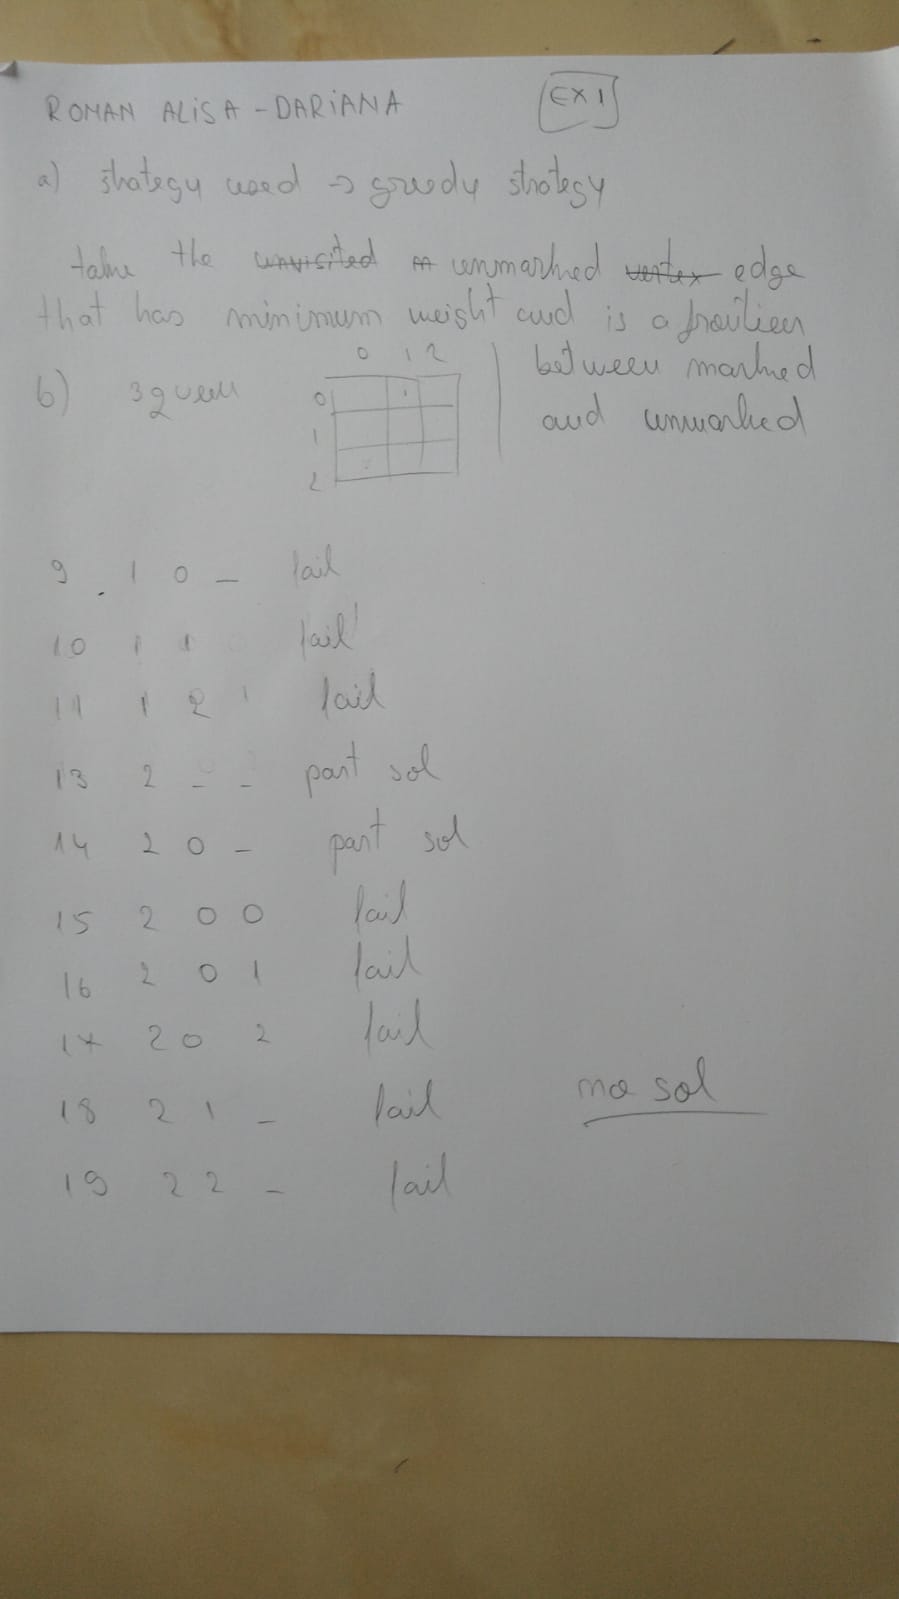 ROMAN ALISA-DARIANA EX 1
a) strategy used → greedy strategy
take the unvisited unmarked vertex edge
that has minimum weight and is a frontier
between marked
and unmarked
b) 3 queen
0 1 2
0
1
2
9 1 0 _ fail
10 1 1 fail
11 1 2 fail
13 2 _ _ part sol
14 2 0 _ part sol
15 2 0 0 fail
16 2 0 1 fail
17 2 0 2 fail
18 2 1 _ fail
no sol
19 2 2 _ fail